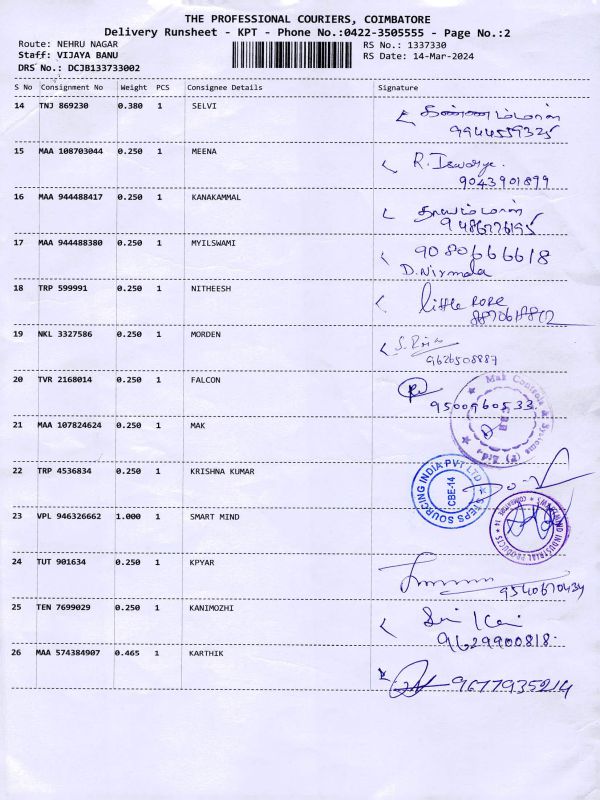 THE PROFESSIONAL COURIERS, COIMBATORE
Delivery Runsheet - KPT - Phone No.:0422-3505555 - Page No.:2
Route: NEHRU NAGAR RS No.: 1337330
Staff: VIJAYA BANU RS Date: 14-Mar-2024
DRS No.: DCJB133733002
S No Consignment No Weight PCS Consignee Details Signature
14 TNJ 869230 0.380 1 SELVI
9944559325
15 MAA 108703044 0.250 1 MEENA R. Iswarya.
9043901899
16 MAA 944488417 0.250 1 KANAKAMMAL
17 MAA 944488380 0.250 1 MYILSWAMI 9080666618
D. Nirmala
18 TRP 599991 0.250 1 NITHEESH little ROSE
19 NKL 3327586 0.250 1 MORDEN
9626508887
20 TVR 2168014 0.250 1 FALCON
9500960533
Mak Controls & Systems (P) Ltd.
21 MAA 107824624 0.250 1 MAK
22 TRP 4536834 0.250 1 KRISHNA KUMAR
STEPS SOURCING INDIA PVT LTD
CBE-14
23 VPL 946326662 1.000 1 SMART MIND
INDUSTRIAL PRODUCTS
24 TUT 901634 0.250 1 KPYAR
9540670434
25 TEN 7699029 0.250 1 KANIMOZHI
9629900818
26 MAA 574384907 0.465 1 KARTHIK
9677935214